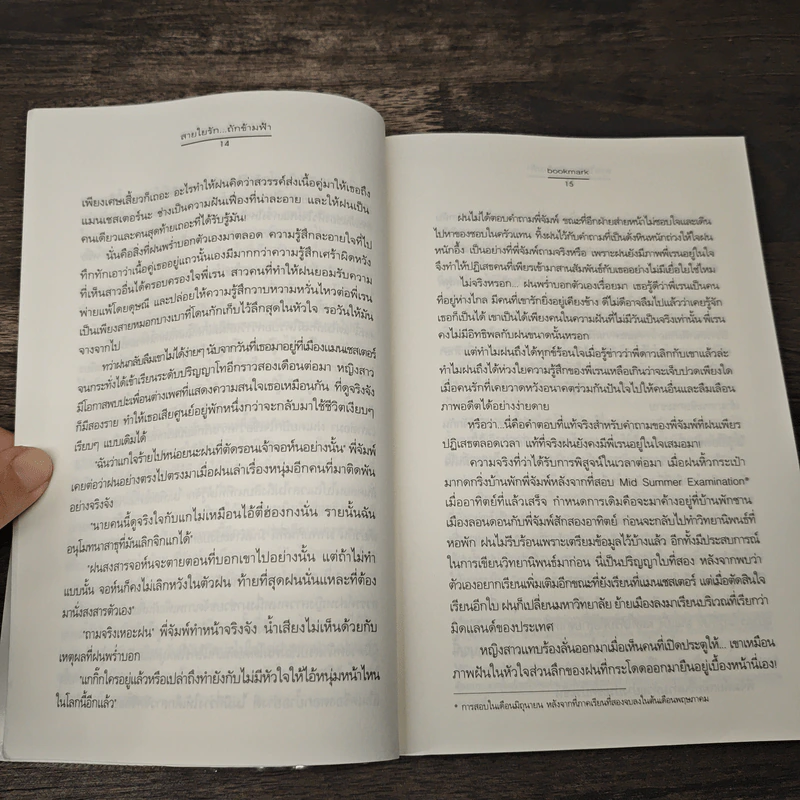 สายใยรัก...ถักข้ามฟ้า
14
เพียงเศษเสี้ยวก็เถอะ อะไรทำให้ฝนคิดว่าสวรรค์ส่งเนื้อคู่มาให้เธอถึง
แมนเชสเตอร์นะ ช่างเป็นความฝันเฟื่องที่น่าละอาย และให้ฝนเป็น
คนเดียวและคนสุดท้ายเถอะที่ได้รับรู้มัน!
นั่นคือสิ่งที่ฝนพร่ำบอกตัวเองมาตลอด ความรู้สึกละอายใจที่ไป
ทึกทักเอาว่าเนื้อคู่เธออยู่แถวนั้นเองมีมากกว่าความรู้สึกเศร้าผิดหวัง
ที่เห็นสาวอื่นได้ครอบครองใจพี่เรน สาวคนที่ทำให้ฝนยอมรับความ
พ่ายแพ้โดยดุษณี และปล่อยให้ความรู้สึกวาบหวามหวั่นไหวต่อพี่เรน
เป็นเพียงสายหมอกบางเบาที่โดนกักเก็บไว้ลึกสุดในหัวใจ รอวันให้มัน
จางจากไป
ทว่าฝนกลับลืมเขาไม่ได้ง่ายๆ นับจากวันที่เธอมาอยู่ที่เมืองแมนเชสเตอร์
จนกระทั่งได้เข้าเรียนระดับปริญญาโทอีกราวสองเดือนต่อมา หญิงสาว
มีโอกาสพบปะเพื่อนต่างเพศที่แสดงความสนใจเธอเหมือนกัน ที่ดูจริงจัง
ก็มีสองราย ทำให้เธอเสียศูนย์อยู่พักหนึ่งกว่าจะกลับมาใช้ชีวิตเงียบๆ
เรียบๆ แบบเดิมได้
'ฉันว่าแกใจร้ายไปหน่อยนะฝนที่ตัดรอนเจ้าจอห์นอย่างนั้น' พี่จัมพ์
เคยต่อว่าฝนอย่างตรงไปตรงมาเมื่อฝนเล่าเรื่องหนุ่มอีกคนที่มาติดพัน
อย่างจริงจัง
'นายคนนี้ดูจริงใจกับแกไม่เหมือนไอ้ตี๋ฮ่องกงนั่น รายนั้นฉัน
อนุโมทนาสาธุที่มันเลิกจิกแกได้'
'ฝนสงสารจอห์นจะตายตอนที่บอกเขาไปอย่างนั้น แต่ถ้าไม่ทำ
แบบนั้น จอห์นก็คงไม่เลิกหวังในตัวฝน ท้ายที่สุดฝนนั่นแหละที่ต้อง
มานั่งสงสารตัวเอง'
'ถามจริงเหอะฝน' พี่จัมพ์ทำหน้าจริงจัง น้ำเสียงไม่เห็นด้วยกับ
เหตุผลที่ฝนพร่ำบอก
'แกกิ๊กใครอยู่แล้วหรือเปล่าถึงทำยังกับไม่มีหัวใจให้ไอ้หนุ่มหน้าไหน
ในโลกนี้อีกแล้ว'
bookmark
15
ฝนไม่ได้ตอบคำถามพี่จัมพ์ ขณะที่อีกฝ่ายส่ายหน้าไม่ชอบใจและเดิน
ไปหาของชอบในครัวแทน ทิ้งฝนไว้กับคำถามที่เป็นดังหินหนักถ่วงให้ใจฝน
หนักอึ้ง เป็นอย่างที่พี่จัมพ์ถามจริงหรือ เพราะฝนยังมีภาพพี่เรนอยู่ในใจ
จึงทำให้ปฏิเสธคนที่เพียรเข้ามาสานสัมพันธ์กับเธออย่างไม่มีเยื่อใยใช่ไหม
ไม่จริงหรอก... ฝนพร่ำบอกตัวเองเรื่อยมา เธอรู้ดีว่าพี่เรนเป็นคน
ที่อยู่ห่างไกล มีคนที่เขารักยิ่งอยู่เคียงข้าง ดีไม่ดีอาจลืมไปแล้วว่าเคยรู้จัก
เธอก็เป็นได้ เขาเป็นได้เพียงคนในความฝันที่ไม่มีวันเป็นจริงเท่านั้น พี่เรน
คงไม่มีอิทธิพลกับฝนขนาดนั้นหรอก
แต่ทำไมฝนถึงได้ทุกข์ร้อนใจเมื่อรู้ข่าวว่าพี่ดาวเลิกกับเขาแล้วล่ะ
ทำไมฝนถึงได้ห่วงใยความรู้สึกของพี่เรนเหลือเกินว่าจะเจ็บปวดเพียงใด
เมื่อคนรักที่เคยวาดหวังอนาคตร่วมกันปันใจไปให้คนอื่นและลืมเลือน
ภาพอดีตได้อย่างง่ายดาย
หรือว่า...นี่คือคำตอบที่แท้จริงสำหรับคำถามของพี่จัมพ์ที่ฝนเพียร
ปฏิเสธตลอดเวลา แท้ที่จริงฝนยังคงมีพี่เรนอยู่ในใจเสมอมา!
ความจริงที่ว่าได้รับการพิสูจน์ในเวลาต่อมา เมื่อฝนหิ้วกระเป๋า
มากดกริ่งบ้านพักพี่จัมพ์หลังจากที่สอบ Mid Summer Examination*
เมื่ออาทิตย์ที่แล้วเสร็จ กำหนดการเดิมคือจะมาค้างอยู่ที่บ้านพักชาน
เมืองลอนดอนกับพี่จัมพ์สักสองอาทิตย์ ก่อนจะกลับไปทำวิทยานิพนธ์ที่
หอพัก ฝนไม่รีบร้อนเพราะเตรียมข้อมูลไว้บ้างแล้ว อีกทั้งมีประสบการณ์
ในการเขียนวิทยานิพนธ์มาก่อน นี่เป็นปริญญาใบที่สอง หลังจากพบว่า
ตัวเองอยากเรียนเพิ่มเติมอีกขณะที่ยังเรียนที่แมนเชสเตอร์ แต่เมื่อตัดสินใจ
เรียนอีกใบ ฝนก็เปลี่ยนมหาวิทยาลัย ย้ายเมืองลงมาเรียนบริเวณที่เรียกว่า
มิดแลนด์ของประเทศ
หญิงสาวแทบร้องลั่นออกมาเมื่อเห็นคนที่เปิดประตูให้... เขาเหมือน
ภาพฝันในหัวใจส่วนลึกของฝนที่กระโดดออกมายืนอยู่เบื้องหน้านี่เอง!
* การสอบในเดือนมิถุนายน หลังจากที่ภาคเรียนที่สองจบลงในต้นเดือนพฤษภาคม